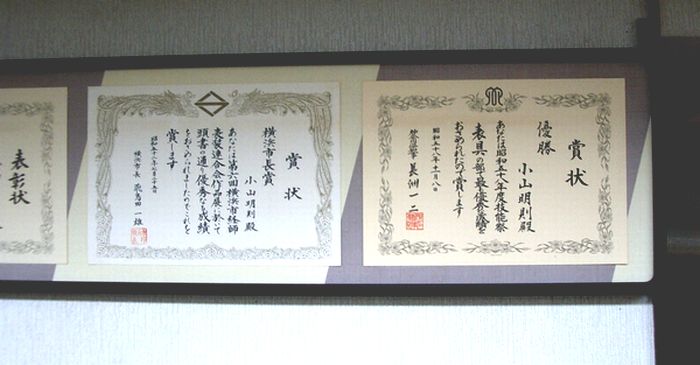 賞状
優勝
小山明則殿
あなたは昭和五十八年度技能祭
表具の部で最優秀の成績を
おさめられたので賞します
昭和五十八年十一月八日
賞状
横浜市長賞
小山明則殿
あなたは第六回横浜市経師
表装連合会作品展に於いて
頭書の通り優秀なる成績
をおさめられましたのでこれを
賞します
横浜市長
表彰状